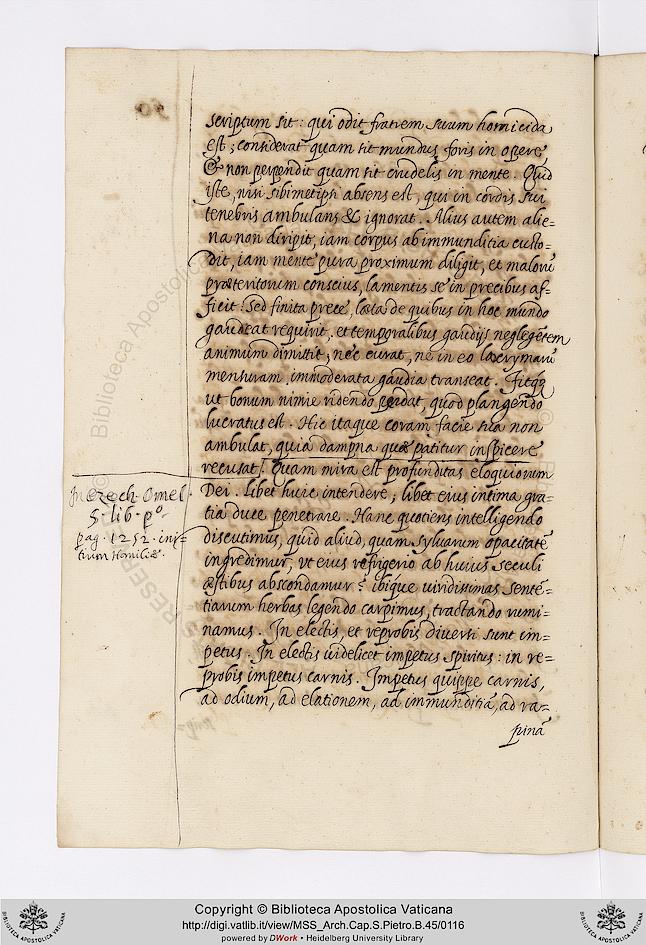 scriptum sit: qui odit fratrem suum homicida
est; considerat quam sit mundus foris in opere
& non perpendit quam sit crudelis in mente. Quid
iste, nisi sibimetipsi absens est, qui in cordis sui
tenebris ambulans & ignorat. Alius autem alie=
na non diripit, iam corpus ab immunditia custo=
dit, iam mente pura proximum diligit, et malorū
præteritorum conscius, lamentis se in precibus af=
ficit. Sed finita prece, læta de quibus in hoc mundo
gaudeat requirit, et temporalibus gaudijs neglegētem
animum dimittit; nec curat, ne in eo lacrymarū
mensuram, immoderata gaudia transeat. Fitq3
ut bonum nimie ridendo perdat, quod plangendo
lucratus est. Hic itaque coram facie sua non
ambulat, quia dampna quæ patitur inspicere
recusat. Quam mira est profunditas eloquiorum
Dei. libet huic intendere, libet eius intima gra=
tia duce penetrare. Hanc quotiens intelligendo
discutimus, quid aliud, quam sylvarum opacitatē
ingredimur, ut eius refrigerio ab huius seculi
æstibus abscondamur? ibique uiridissimas sentē=
tiarum herbas legendo carpimus, tractando rumi=
namus. In electis, et reprobis diuersi sunt im=
petus. In electis uidelicet impetus spiritus: in re=
probis impetus carnis. Impetus quippe carnis,
ad odium, ad elationem, ad immunditiā, ad ra=
pinā
In Ezech. Omel.
5. lib. p.º
pag. 1252. ini=
tium Homiliæ.
Biblioteca Apostolica
Copyright © Biblioteca Apostolica Vaticana
http://digi.vatlib.it/view/MSS_Arch.Cap.S.Pietro.B.45/0116
powered by DWork • Heidelberg University Library